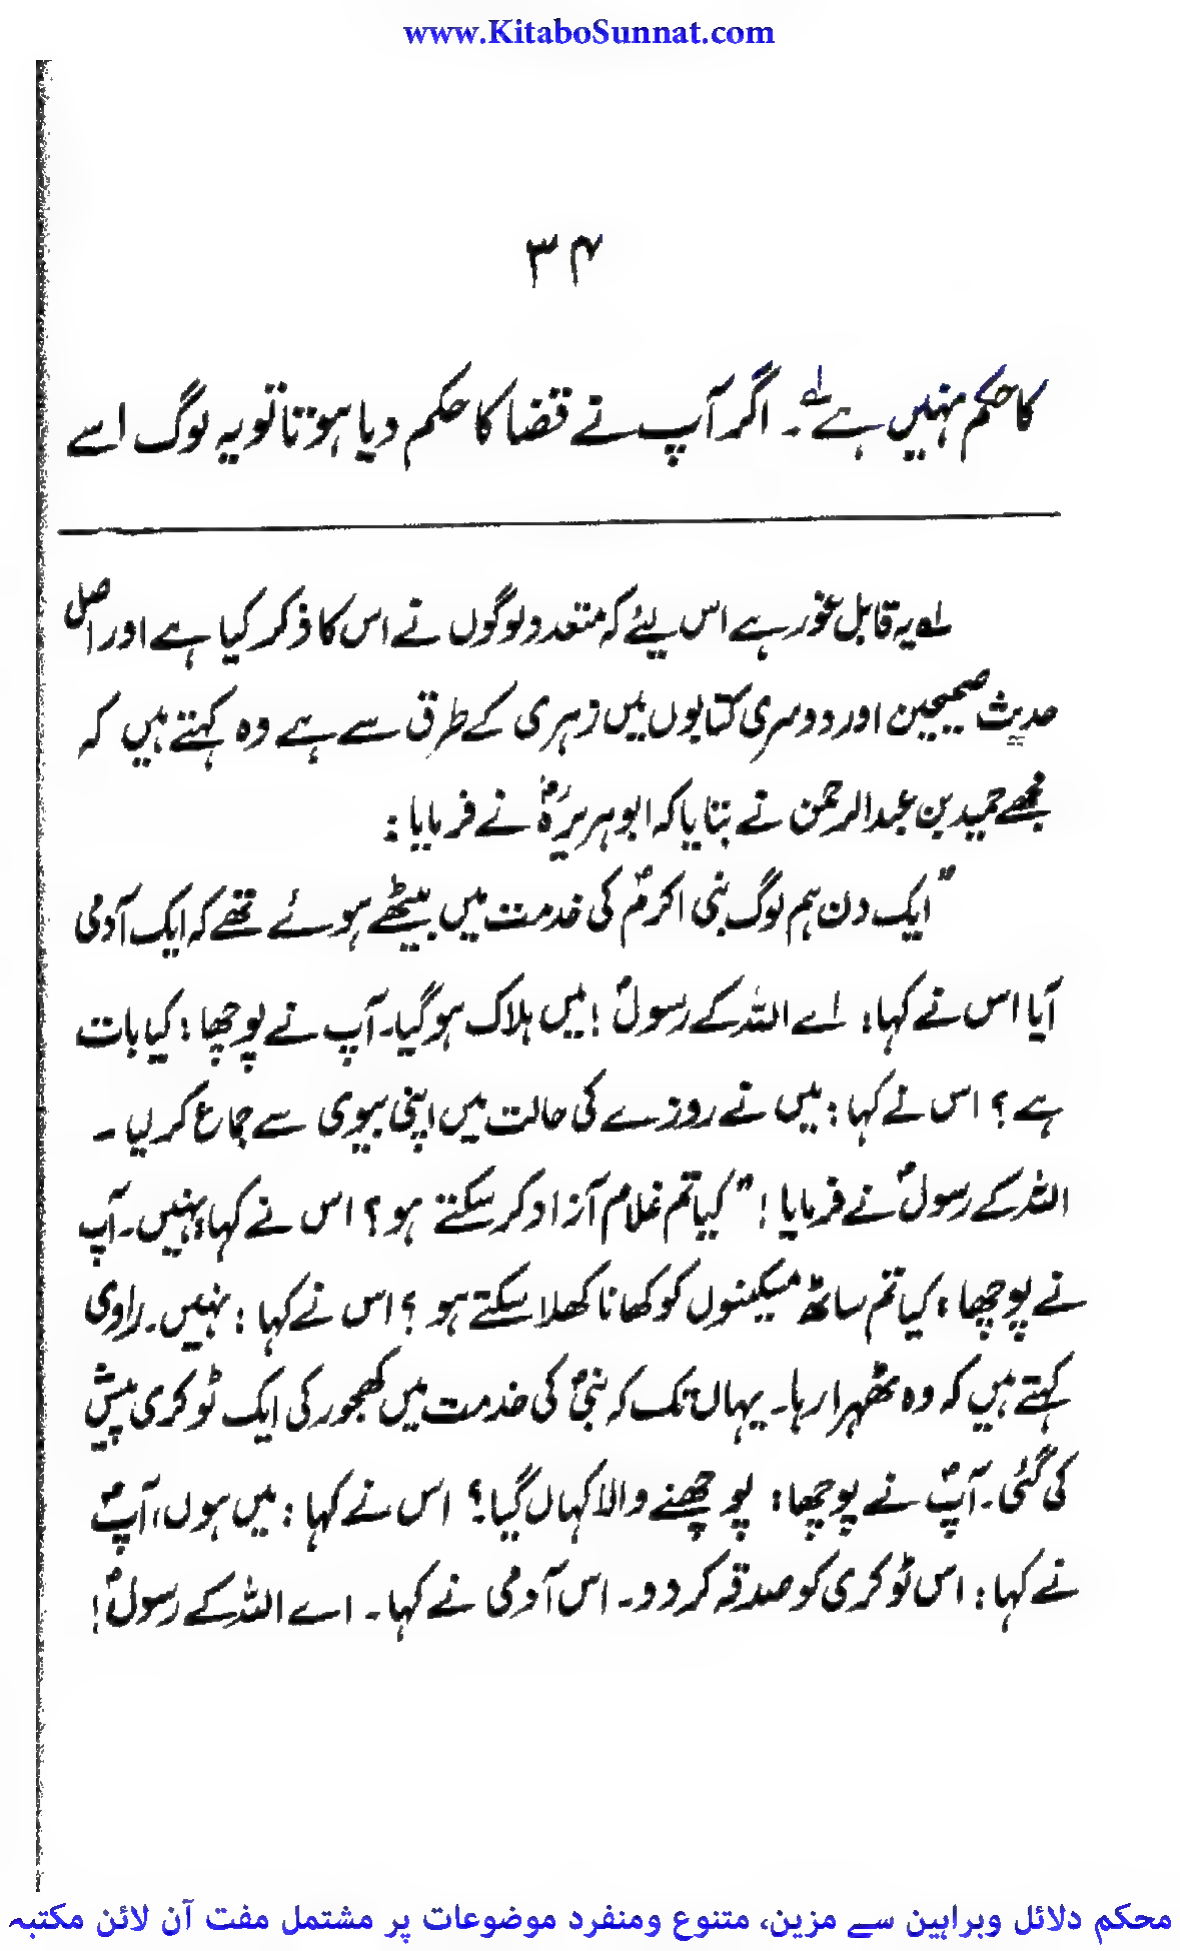 www.KitaboSunnat.com
۳۴
کا حکم نہیں ہے لہ ۔ اگر آپ نے قضا کا حکم دیا ہوتا تو یہ لوگ اسے
لہ یہ قابل غور ہے اس لیئے کہ متعدد لوگوں نے اس کا ذکر کیا ہے اور اصل
حدیث صحیحین اور دوسری کتابوں میں زہری کے طرق سے ہے وہ کہتے ہیں کہ
مجھے حمید بن عبدالرحمن نے بتایا کہ ابوہریرہؓ نے فرمایا :
” ایک دن ہم لوگ نبی اکرمؐ کی خدمت میں بیٹھے ہوئے تھے کہ ایک آدمی
آیا اس نے کہا: اے اللہ کے رسولؐ ! میں ہلاک ہوگیا۔ آپ نے پوچھا : کیا بات
ہے ؟ اس نے کہا : میں نے روزے کی حالت میں اپنی بیوی سے جماع کر لیا ۔
اللہ کے رسولؐ نے فرمایا ! ” کیا تم غلام آزاد کر سکتے ہو ؟ اس نے کہا: نہیں۔ آپ
نے پوچھا : کیا تم ساٹھ مسکینوں کو کھانا کھلا سکتے ہو ؟ اس نے کہا : نہیں۔ راوی
کہتے ہیں کہ وہ ٹھہرا رہا۔ یہاں تک کہ نبیؐ کی خدمت میں کھجور کی ایک ٹوکری پیش
کی گئی۔ آپؐ نے پوچھا : پوچھنے والا کہاں گیا؟ اس نے کہا : میں ہوں، آپؐ
نے کہا : اس ٹوکری کو صدقہ کر دو۔ اس آدمی نے کہا۔ اے اللہ کے رسولؐ !
محکم دلائل وبراہین سے مزین، متنوع ومنفرد موضوعات پر مشتمل مفت آن لائن مکتبہ